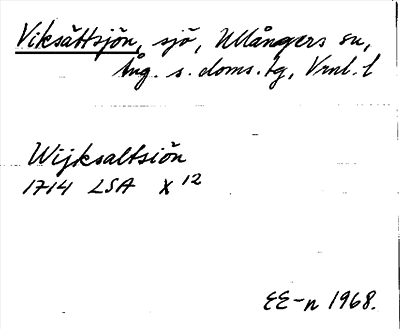 Viksättsjön, sjö, Ullångers sn,
Ång. s. doms.tg, Vrnl. l
Wijksaltsiön
1714 LSA X 12
EE-n 1968.